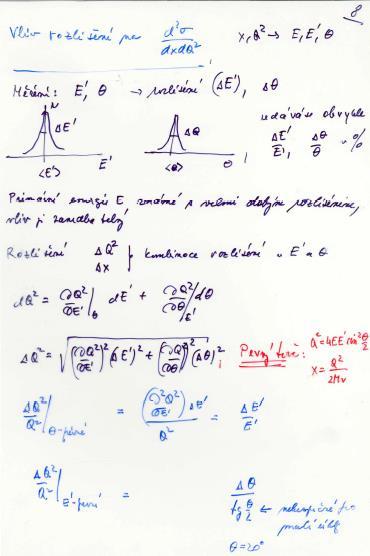 8
Vliv rozlišení na d²σ/dxdQ² x,Q² → E,E',θ
Měření: E', θ → rozlišení (ΔE'), Δθ
N
ΔE' Δθ udává se obvykle
<E'> E' <θ> θ , ΔE'/E', Δθ/θ v %
Primární energie E známé s velmi dobrým rozlišením,
vliv je zanedbatelný
Rozlišení ΔQ² Δx } kombinace rozlišení v E' a θ
dQ² = ∂Q²/∂E'|θ dE' + ∂Q²/∂θ|E' dθ
ΔQ² = √((∂Q²/∂E')²(ΔE')² + (∂Q²/∂θ)²(Δθ)²) ; Q²=4EE' sin² θ/2
x = Q²/2Mν
ΔQ²/Q²|θ-pevné = (∂Q²/∂E') ΔE'/Q² = ΔE'/E'
ΔQ²/Q²|E'-pevné = Δθ/tg θ/2 ← pro malé
θ=20°